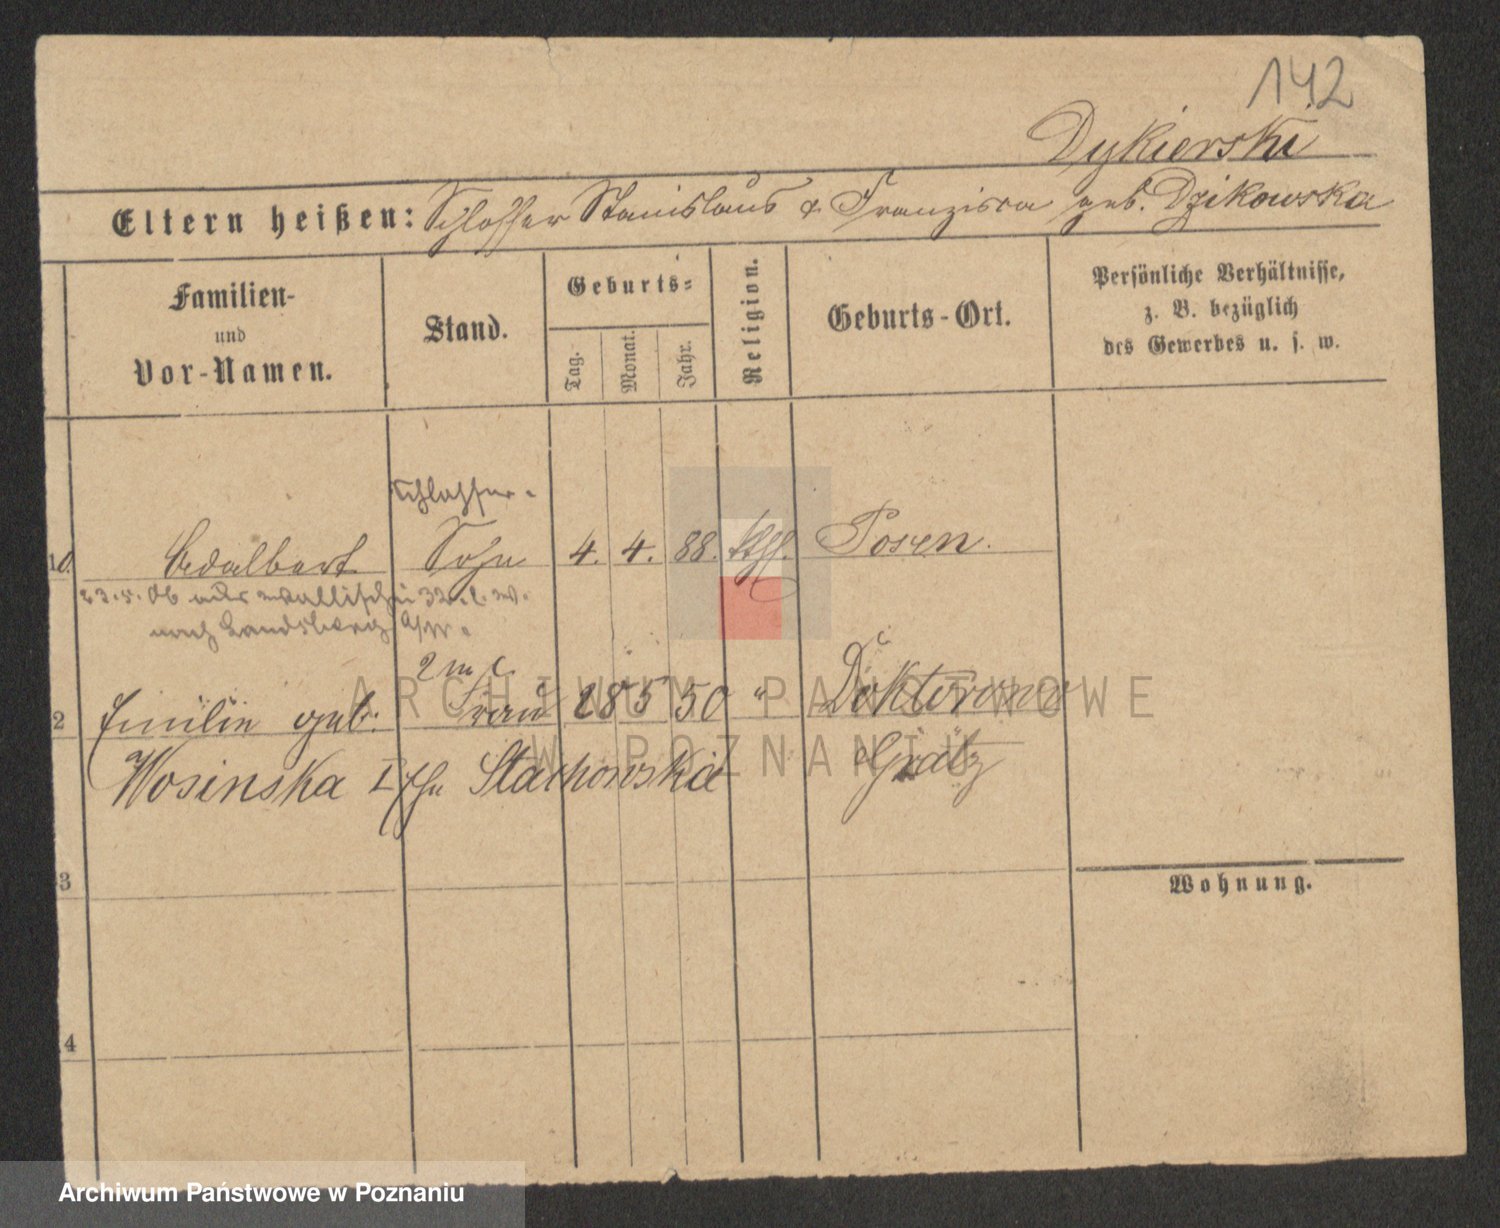 142
Dykierski
Eltern heißen: Schlosser Stanislaus & Franziska geb. Dzikowska
Familien-
und
Vor-Namen.
Stand.
Geburts-
Tag.
Monat.
Jahr.
Religion.
Geburts-Ort.
Persönliche Verhältnisse,
z. B. bezüglich
des Gewerbes u. s. w.
Schlosser
10 Adalbert Sohn 4. 4. 88. kth. Posen.
23.5.06
nach Landsberg a/W.
2 Emilie geb. Frau 28 5 50 " Doktorowo
Wosinska Stachowska Grätz
3
Wohnung.
4
ARCHIWUM PAŃSTWOWE
W POZNANIU
Archiwum Państwowe w Poznaniu